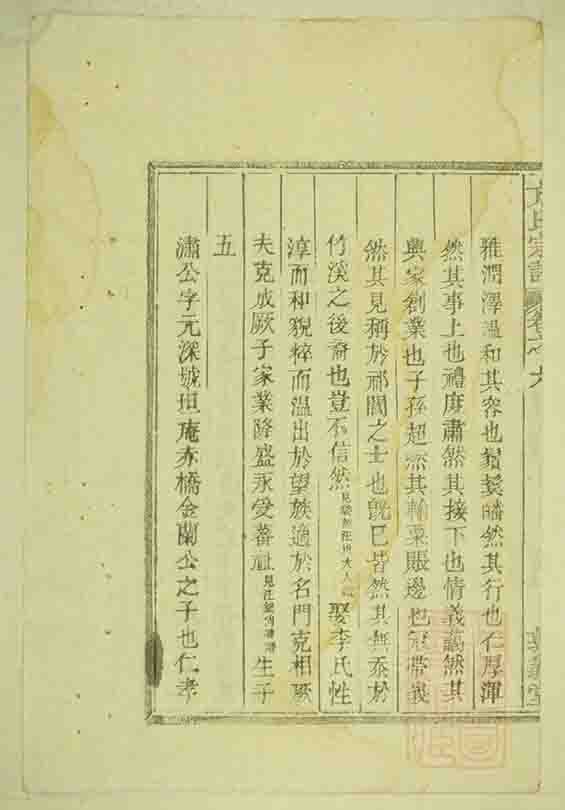 氏宗譜 卷之六
雅潤澤溫和其容也鬚髮皤然其行也仁厚渾
然其事上也禮度肅然其接下也情義藹然其
興家創業也子孫超然其輸粟賑邊也冠帶義
然其見稱於祁閶之士也旣已皆然其無忝於
竹溪之後裔也豈不信然 娶李氏性
淳而和貌粹而溫出於望族適於名門克相厥
夫克成厥子家業隆盛永受蕃祉 生子
五
潚公字元深城坦庵亦橋金蘭公之子也仁孝